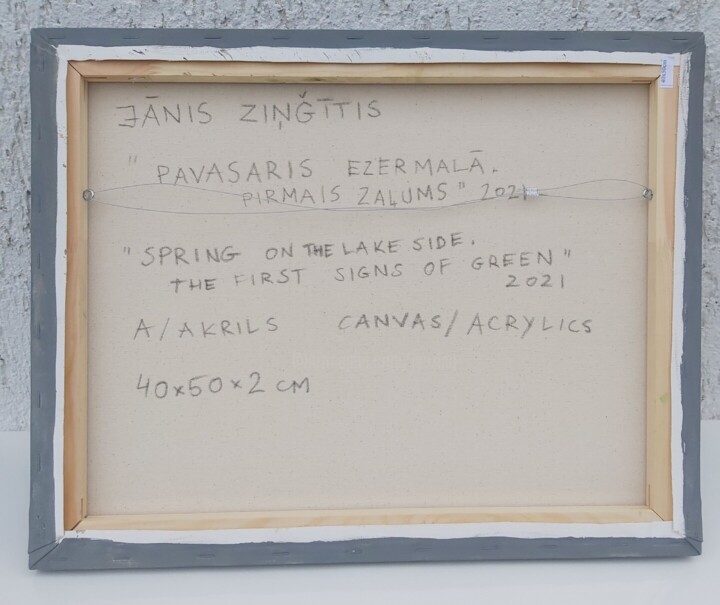 JĀNIS ZIŅĢĪTIS
"PAVASARIS EZERMALĀ.
PIRMAIS ZAĻUMS" 2021
"SPRING ON THE LAKE SIDE.
THE FIRST SIGNS OF GREEN"
2021
A/AKRILS CANVAS/ACRYLICS
40x50x2 CM